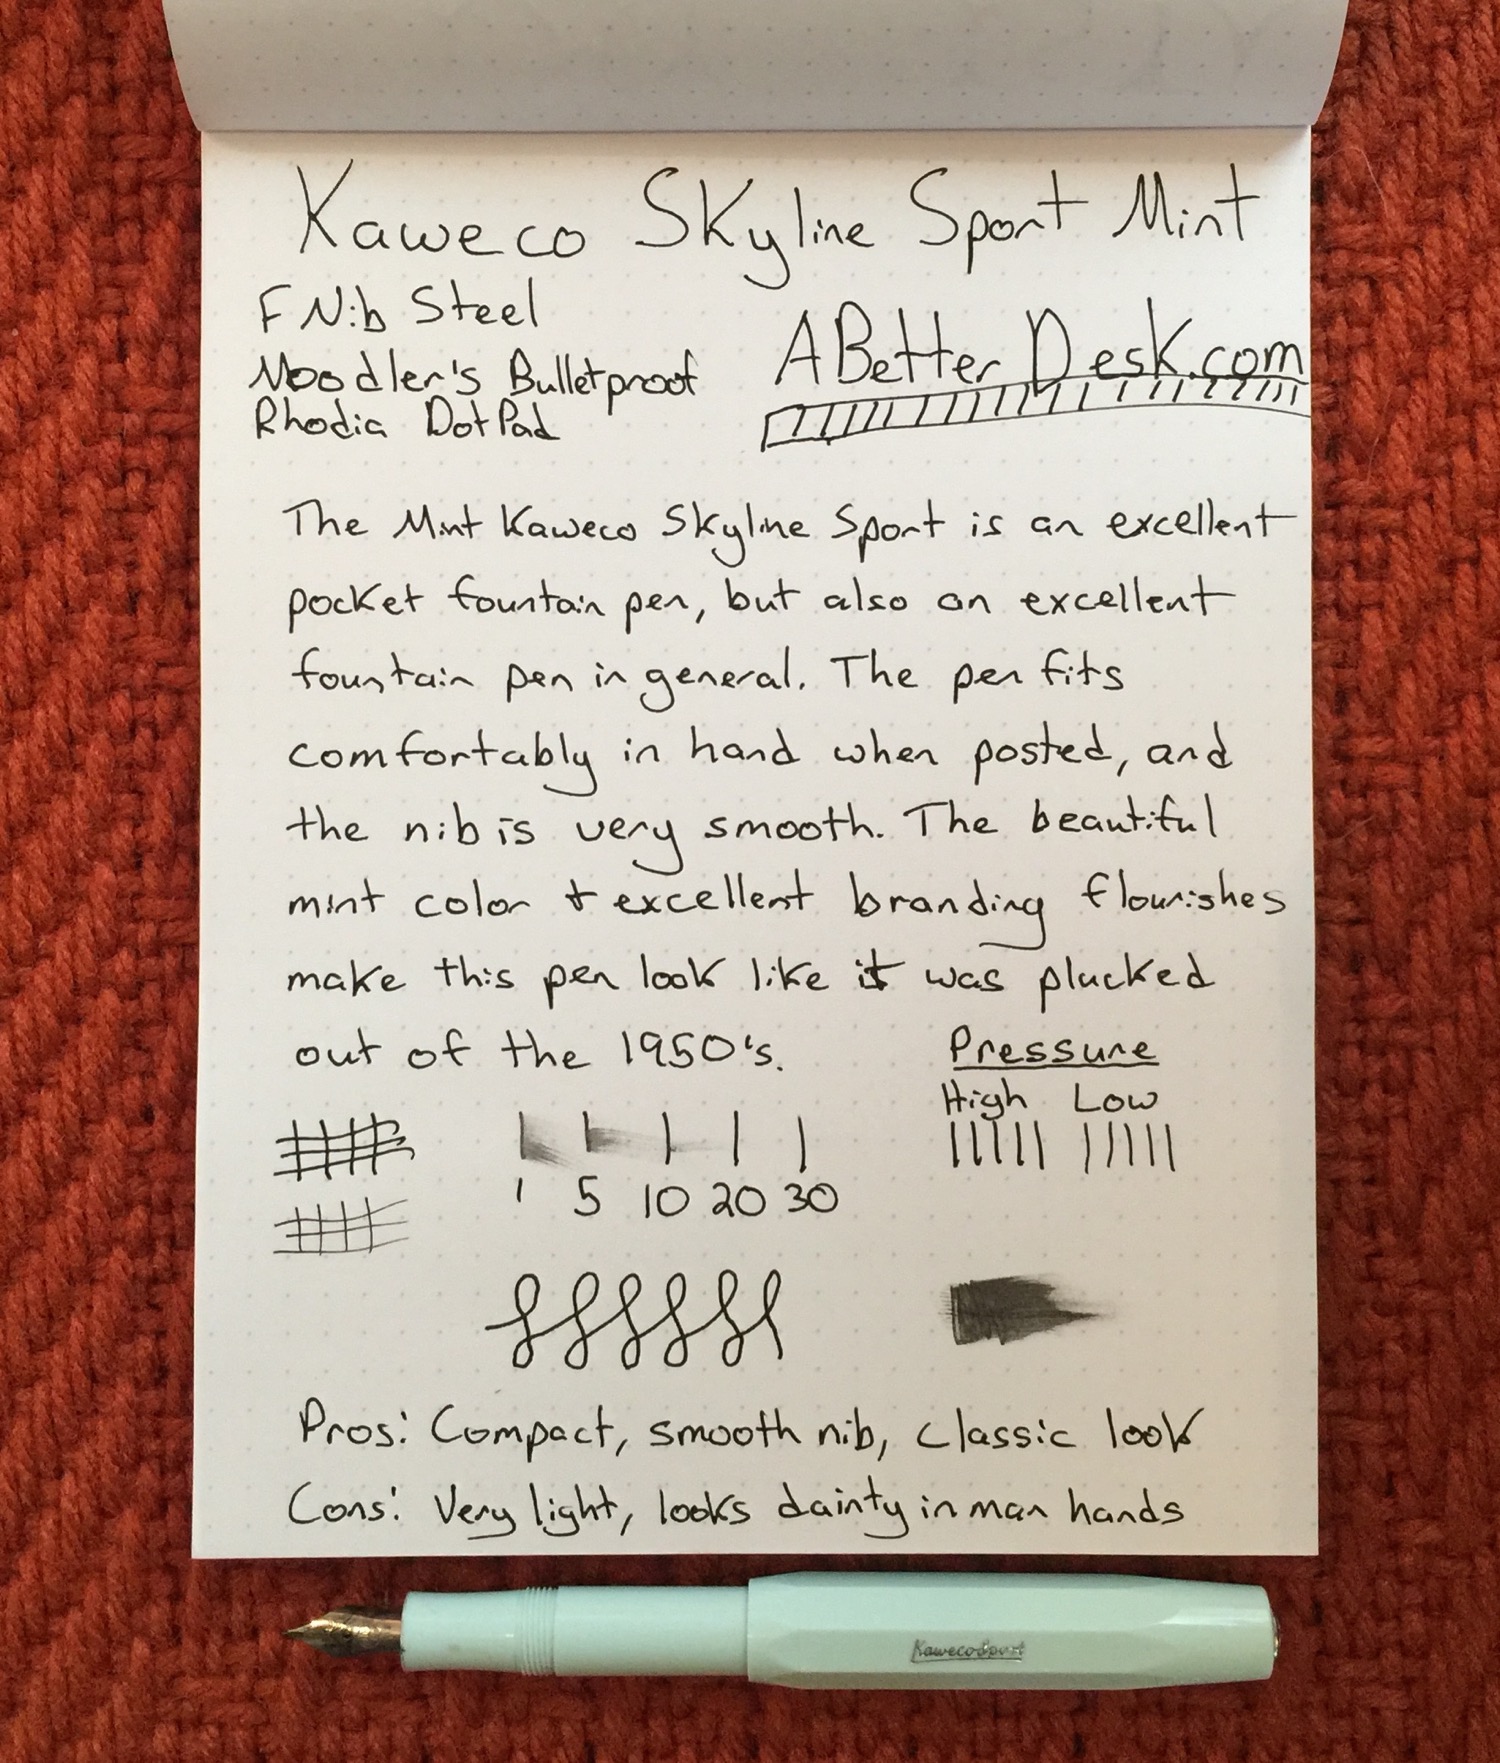 Kaweco Skyline Sport Mint
F Nib Steel
Noodler's Bulletproof
Rhodia Dot Pad
ABetterDesk.com
The Mint Kaweco Skyline Sport is an excellent
pocket fountain pen, but also an excellent
fountain pen in general. The pen fits
comfortably in hand when posted, and
the nib is very smooth. The beautiful
mint color + excellent branding flourishes
make this pen look like it was plucked
out of the 1950's.
Pressure
High Low
1 5 10 20 30
Pros: Compact, smooth nib, classic look
Cons: Very light, looks dainty in man hands
Kaweco Sport